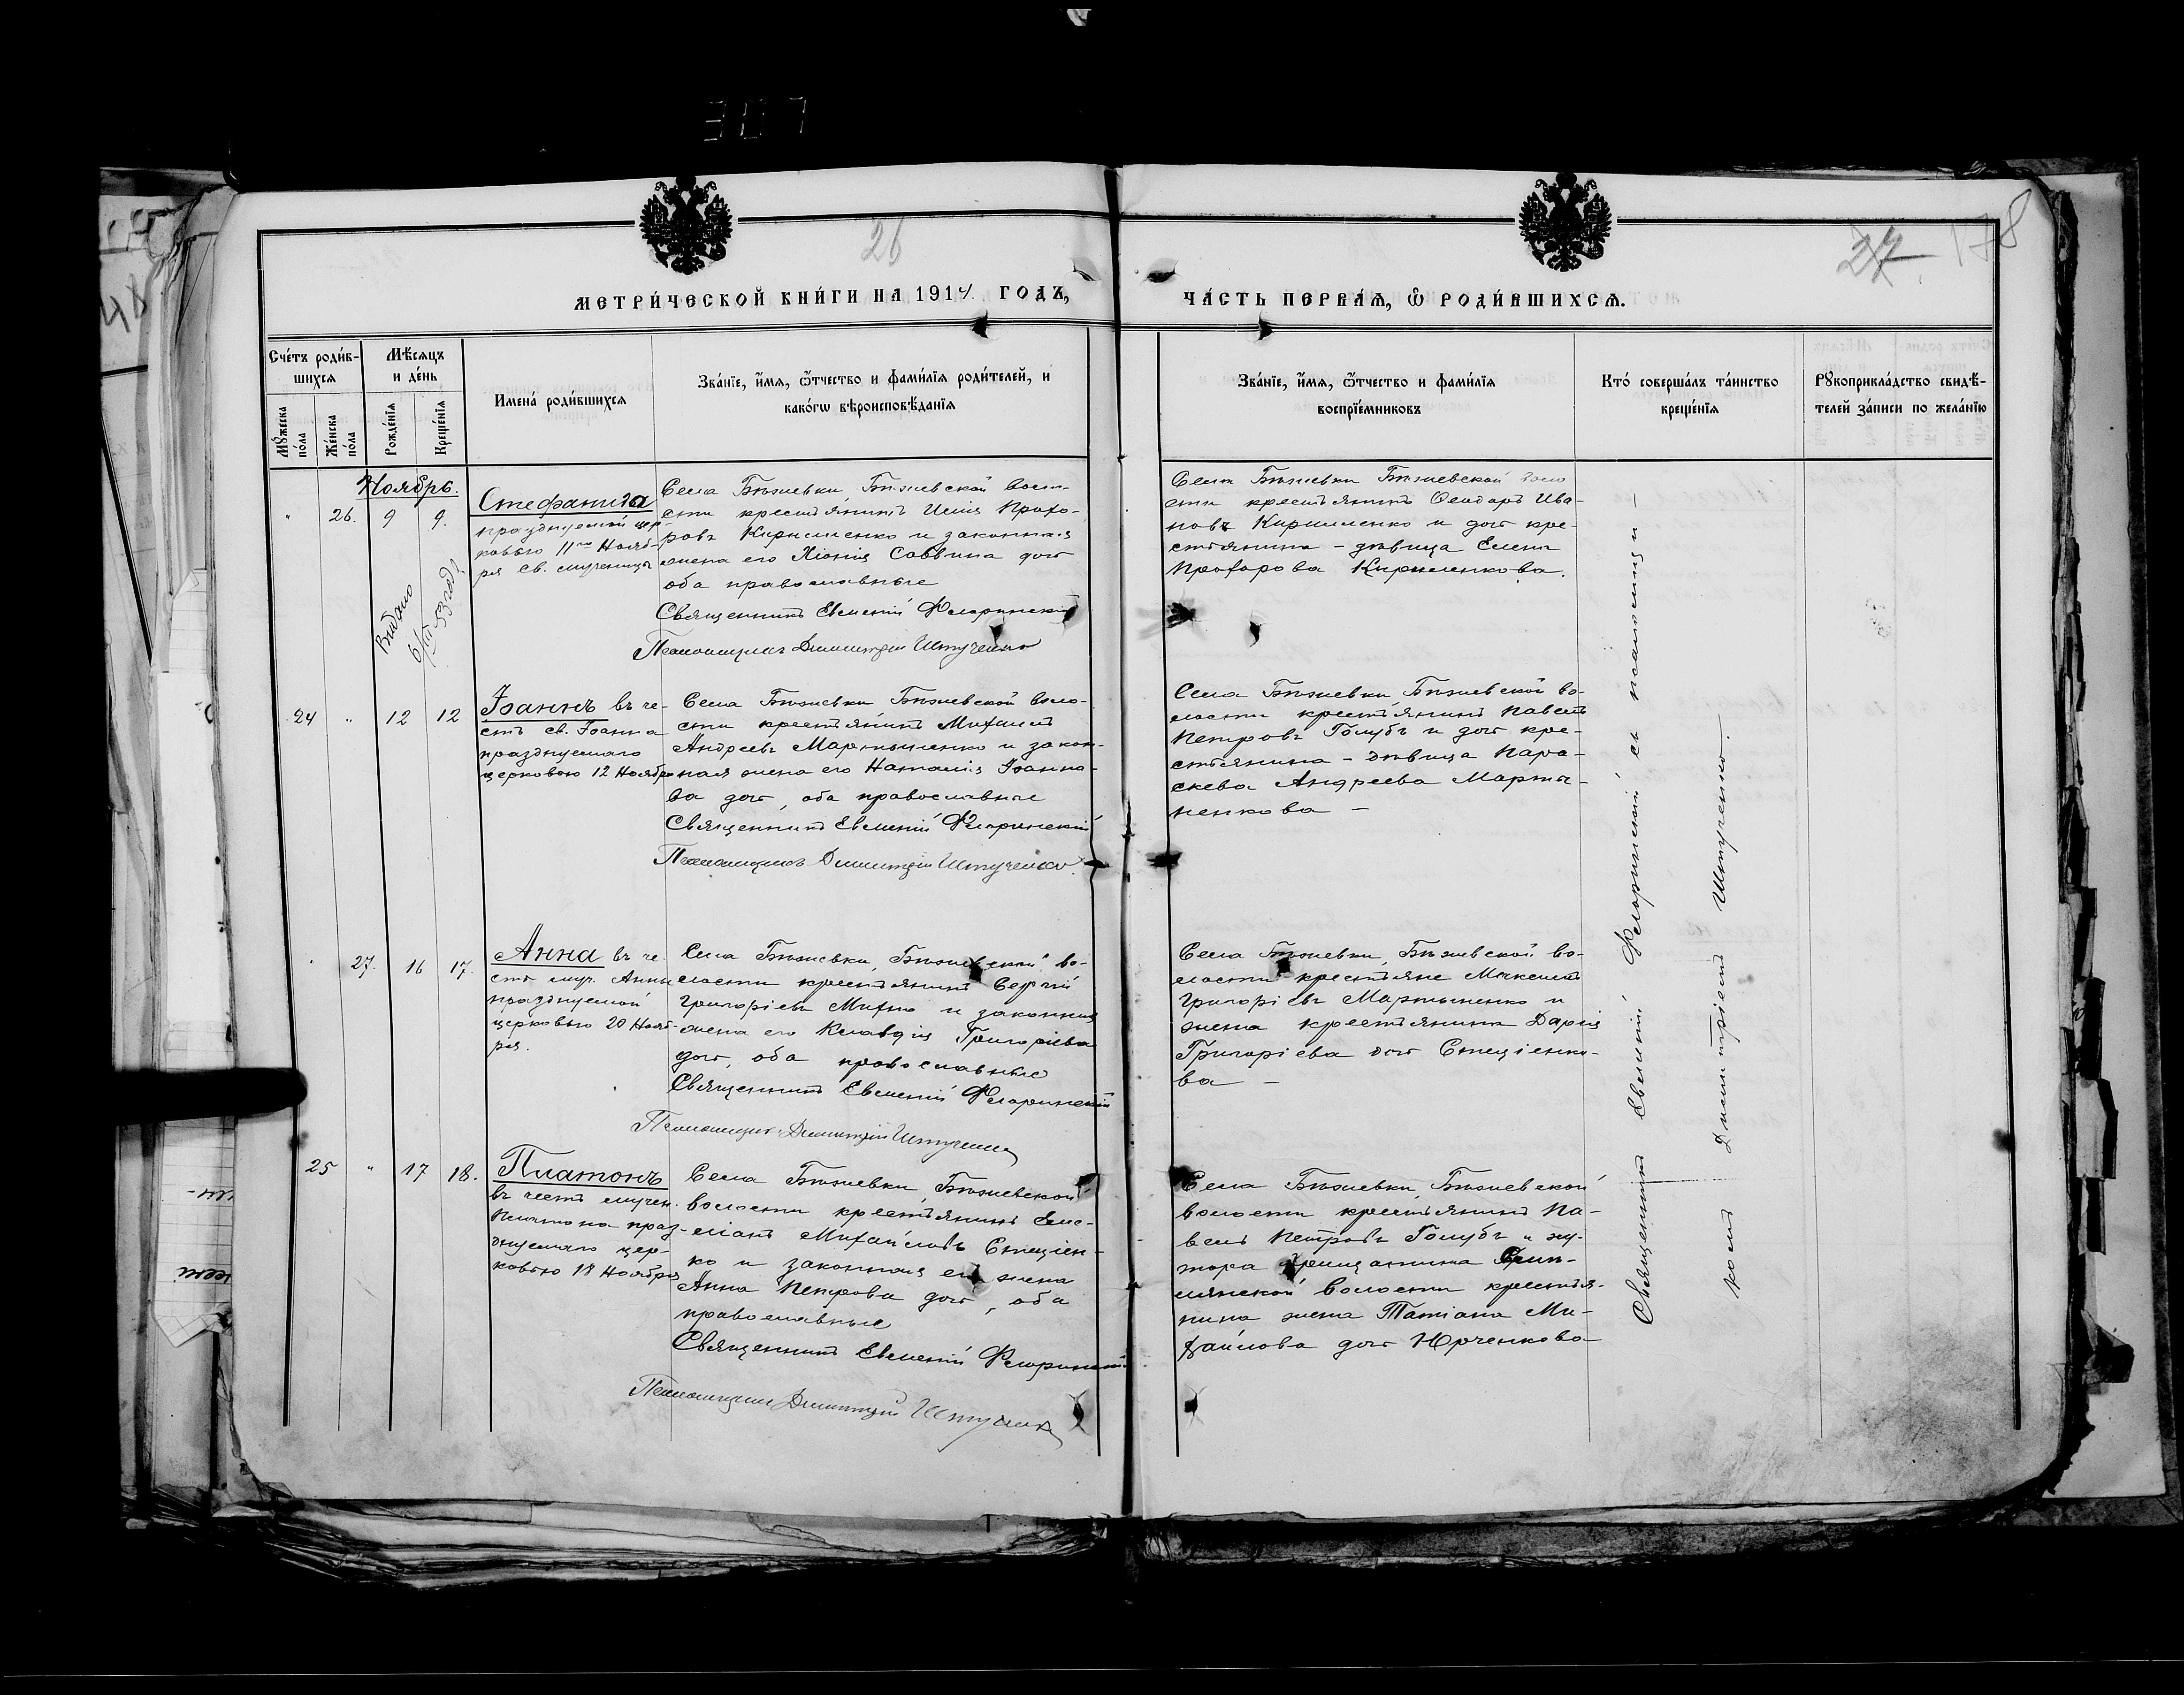 26
27
178
МЕТРИ́ЧЕСКОЙ КНИ́ГИ НА 1914 ГОДЪ,
ЧА́СТЬ ПЕРВАѦ, Ѽ РОДИ́ВШИХСѦ.
Сче́тъ роди́в-
шихсѧ
Мꙋ́жеска по́ла
Же́нска по́ла
Мѣ́сѧцъ
и де́нь
Рожде́нїѧ
Креще́нїѧ
Имена́ роди́вшихсѧ
Зва́нїе, и́мѧ, ѻ҆́тчество и фами́лїѧ роди́телей, и
како́гѡ вѣроисповѣ́данїѧ
Зва́нїе, и́мѧ, ѻ҆́тчество и фами́лїѧ
воспрїе́мниковъ
Кто́ соверша́лъ та́инство
креще́нїѧ
Рꙋкоприкла́дство свидѣ́-
телей за́писи по жела́нїю
Ноябрь.
" 26. 9 9.
Стефанида
празднуемой цер-
ковью 11го Нояб-
ря св. мученицы
Видано
Села Бѣжевки, Бѣжевской воло-
сти крестьянинъ Прохо-
ровъ Кириленко и законная
жена его Хіонія Саввина дочь
оба православные
Священникъ Евменій Флоринскій
Псаломщикъ Димитрій Штученко
Села Бѣжевки Бѣжевской воло
сти крестьянинъ Ѳеодоръ Ива-
новъ Кириленко и дочь кре-
стьянина - дѣвица Елена
Прохорова Кириленкова.
24 " 12 12
Іоаннъ въ че-
сть св. Іоанна
празднуемаго
церковью 12 Ноября
Села Бѣжевки Бѣжевской воло-
сти крестьянинъ Михаилъ
Андреевъ Мартыненко и закон-
ная жена его Наталія Іоанно-
ва дочь, оба православные
Священникъ Евменій Флоринскій
Псаломщикъ Димитрій Штученко.
Села Бѣжевки Бѣжевской во-
лости крестьянинъ Павелъ
Петровъ Голубъ и дочь кре-
стьянина - дѣвица Пара-
скева Андреева Марты-
ненкова -
" 27. 16 17.
Анна въ че-
сть муч. Анны
празднуемой
церковью 20 Нояб-
ря.
Села Бѣжевки, Бѣжевской во-
лости крестьянинъ Сергій
Григоріевъ Михно и законная
жена его Клавдія Григоріева
дочь, оба православные
Священникъ Евменій Флоринскій
Псаломщикъ Димитрій Штученко
Села Бѣжевки, Бѣжевской во-
лости крестьяне Максимъ
Григоріевъ Мартыненко и
жена крестьянина Дарія
Григоріева дочь Стеціенко-
ва -
25 " 17 18.
Платонъ
въ честь мучен.
Платона праз-
днуемаго цер-
ковью 18 Ноября
Села Бѣжевки, Бѣжевской
волости крестьянинъ Еме-
ліанъ Михайловъ Стеціен-
ко и законная его жена
Анна Петрова дочь, оба
православные
Священникъ Евменій Флоринскій
Псаломщикъ Димитрій Штученко
Села Бѣжевки, Бѣжевской
волости крестьянинъ Па-
велъ Петровъ Голубъ и ху-
тора
волости крестья-
нина жена Татіана Ми-
хайлова дочь Юрченкова
Священникъ Евменій Флоринскій съ псаломщи-
комъ Димитріемъ Штученко.